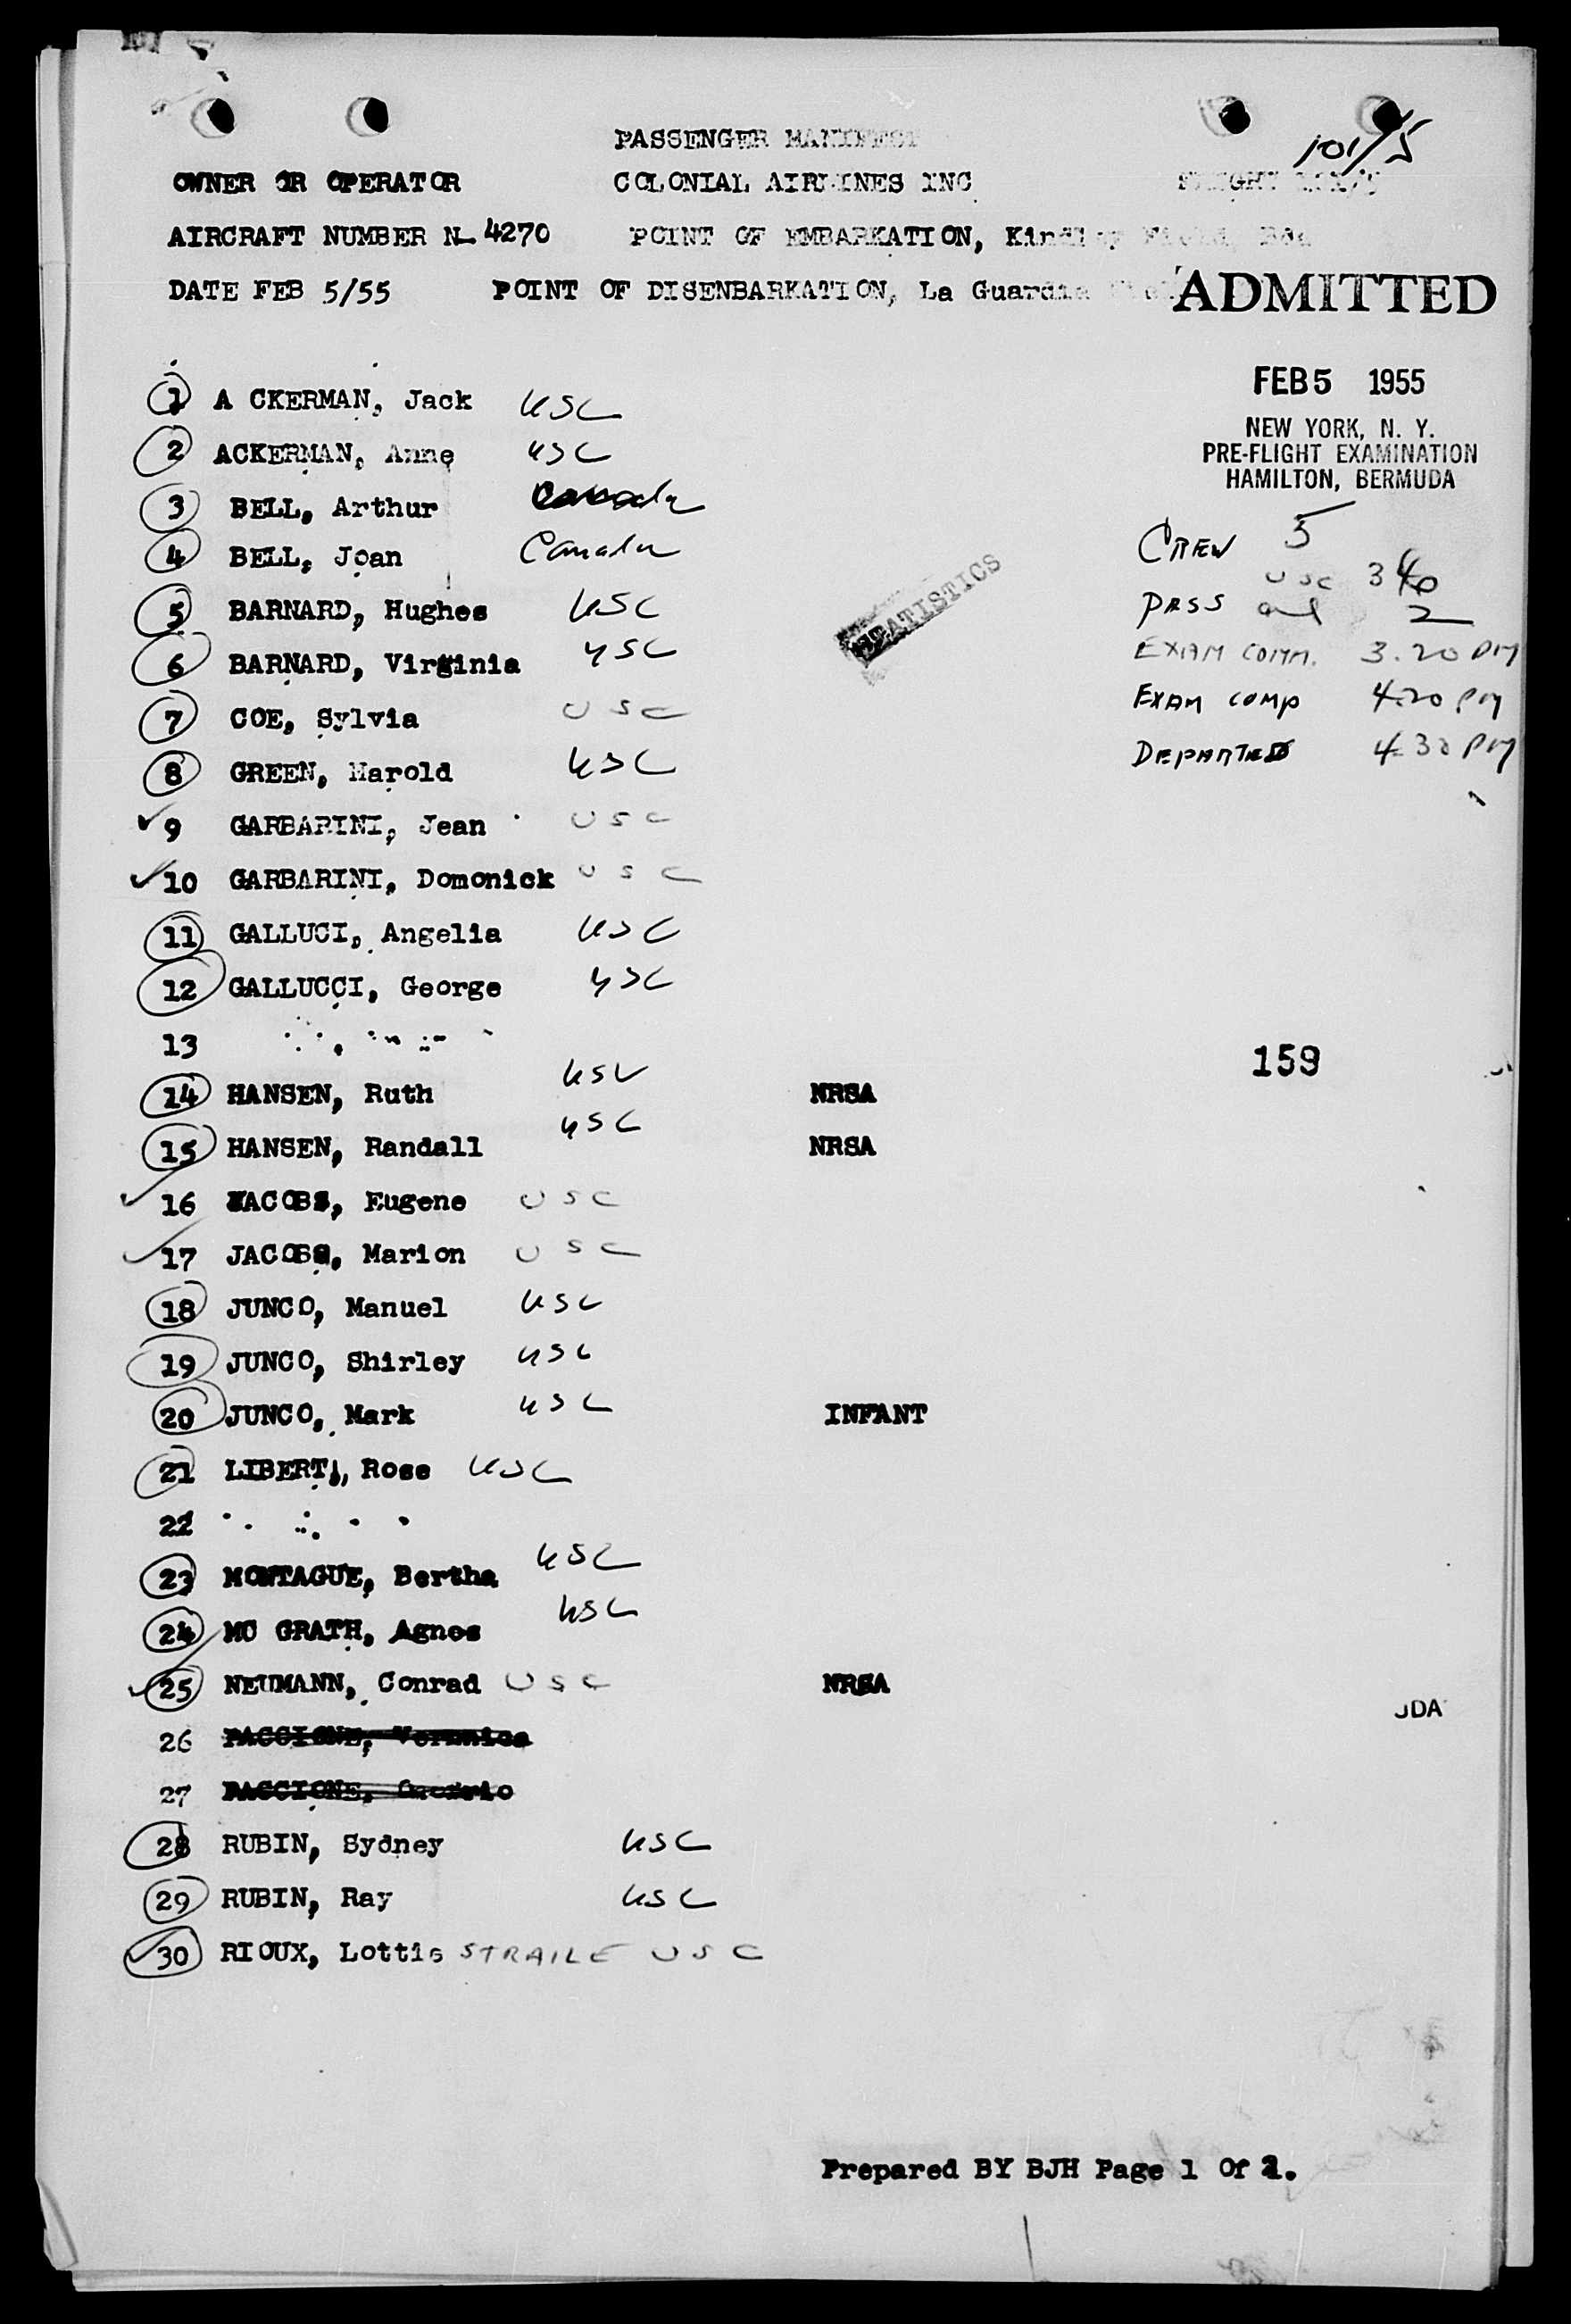 PASSENGER MANIFEST
101/5
OWNER OR OPERATOR COLONIAL AIRLINES INC FLIGHT
AIRCRAFT NUMBER N 4270 POINT OF EMBARKATION, Kindley Field, Bda
DATE FEB 5/55 POINT OF DISENBARKATION, La Guardia
ADMITTED
FEB 5 1955
NEW YORK, N. Y.
PRE-FLIGHT EXAMINATION
HAMILTON, BERMUDA
1 A CKERMAN, Jack USC
2 ACKERMAN, Anne USC
3 BELL, Arthur Canada
4 BELL, Joan Canada
5 BARNARD, Hughes USC
6 BARNARD, Virginia USC
7 COE, Sylvia USC
8 GREEN, Harold USC
9 GARBARINI, Jean USC
10 GARBARINI, Domonick USC
11 GALLUCI, Angelia USC
12 GALLUCCI, George USC
13
14 HANSEN, Ruth USC NRSA
15 HANSEN, Randall USC NRSA
16 JACOBS, Eugene USC
17 JACOBS, Marion USC
18 JUNCO, Manuel USC
19 JUNCO, Shirley USC
20 JUNCO, Mark USC INFANT
21 LIBERTI, Rose USC
22
23 MONTAGUE, Bertha USC
24 MC GRATH, Agnes USC
25 NEUMANN, Conrad USC NRSA
26 PACCIONE, Veronica
27 PACCIONE,
28 RUBIN, Sydney USC
29 RUBIN, Ray USC
30 RIOUX, Lottie STRAILE USC
CREW 5
PASS USC 34
2
EXAM COMM. 3.20 PM
EXAM COMP 4.20 PM
DEPARTED 4.30 PM
STATISTICS
159
UDA
Prepared BY BJH Page 1 Of 2.